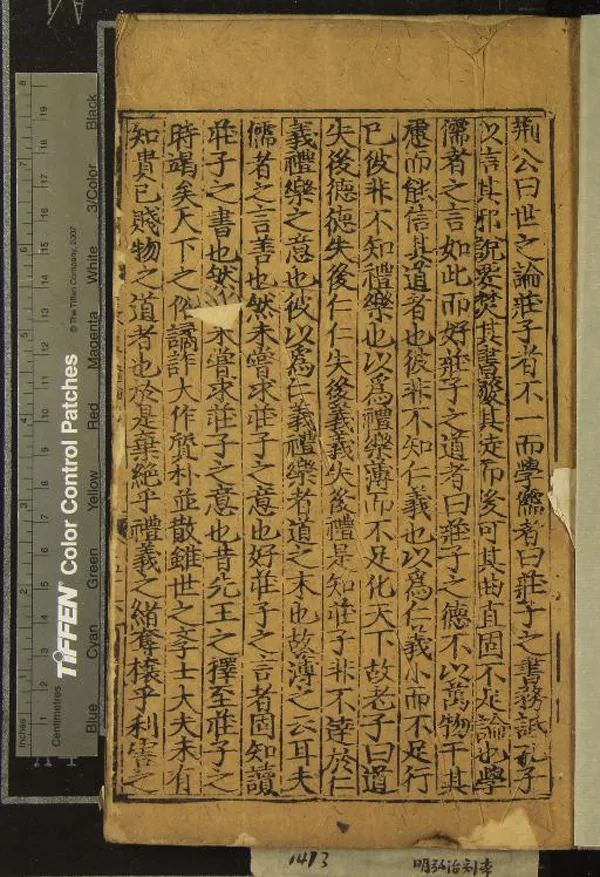 荆公曰世之論莊子者不一而學儒者曰莊子之書務詆孔子
以言其邪說要焚其書廢其徒而後可其曲直固不足論也學
儒者之言如此而好莊子之道者曰莊子之德不以萬物干其
慮而能信其道者也彼非不知仁義也以爲仁義小而不足行
已彼非不知禮樂也以爲禮樂薄而不足化天下故老子曰道
失後德德失後仁仁失後義義失後禮是知莊子非不達於仁
義禮樂之意也彼以爲仁義禮樂者道之末也故薄之云耳夫
儒者之言善也然未嘗求莊子之意也好莊子之言者固知讀
莊子之書也然未嘗求莊子之意也昔先王之澤至莊子之
時竭矣天下之俗譎詐大作質朴並散雖世之斈士大夫未有
知貴己賤物之道者也於是棄絶乎禮義之緒奪攘乎利害之
1413
明弘治刻本
TIFFEN Color Control Patches
© The Tiffen Company, 2007
Inches
Centimetres
Blue Cyan Green Yellow Red Magenta White 3/Color Black